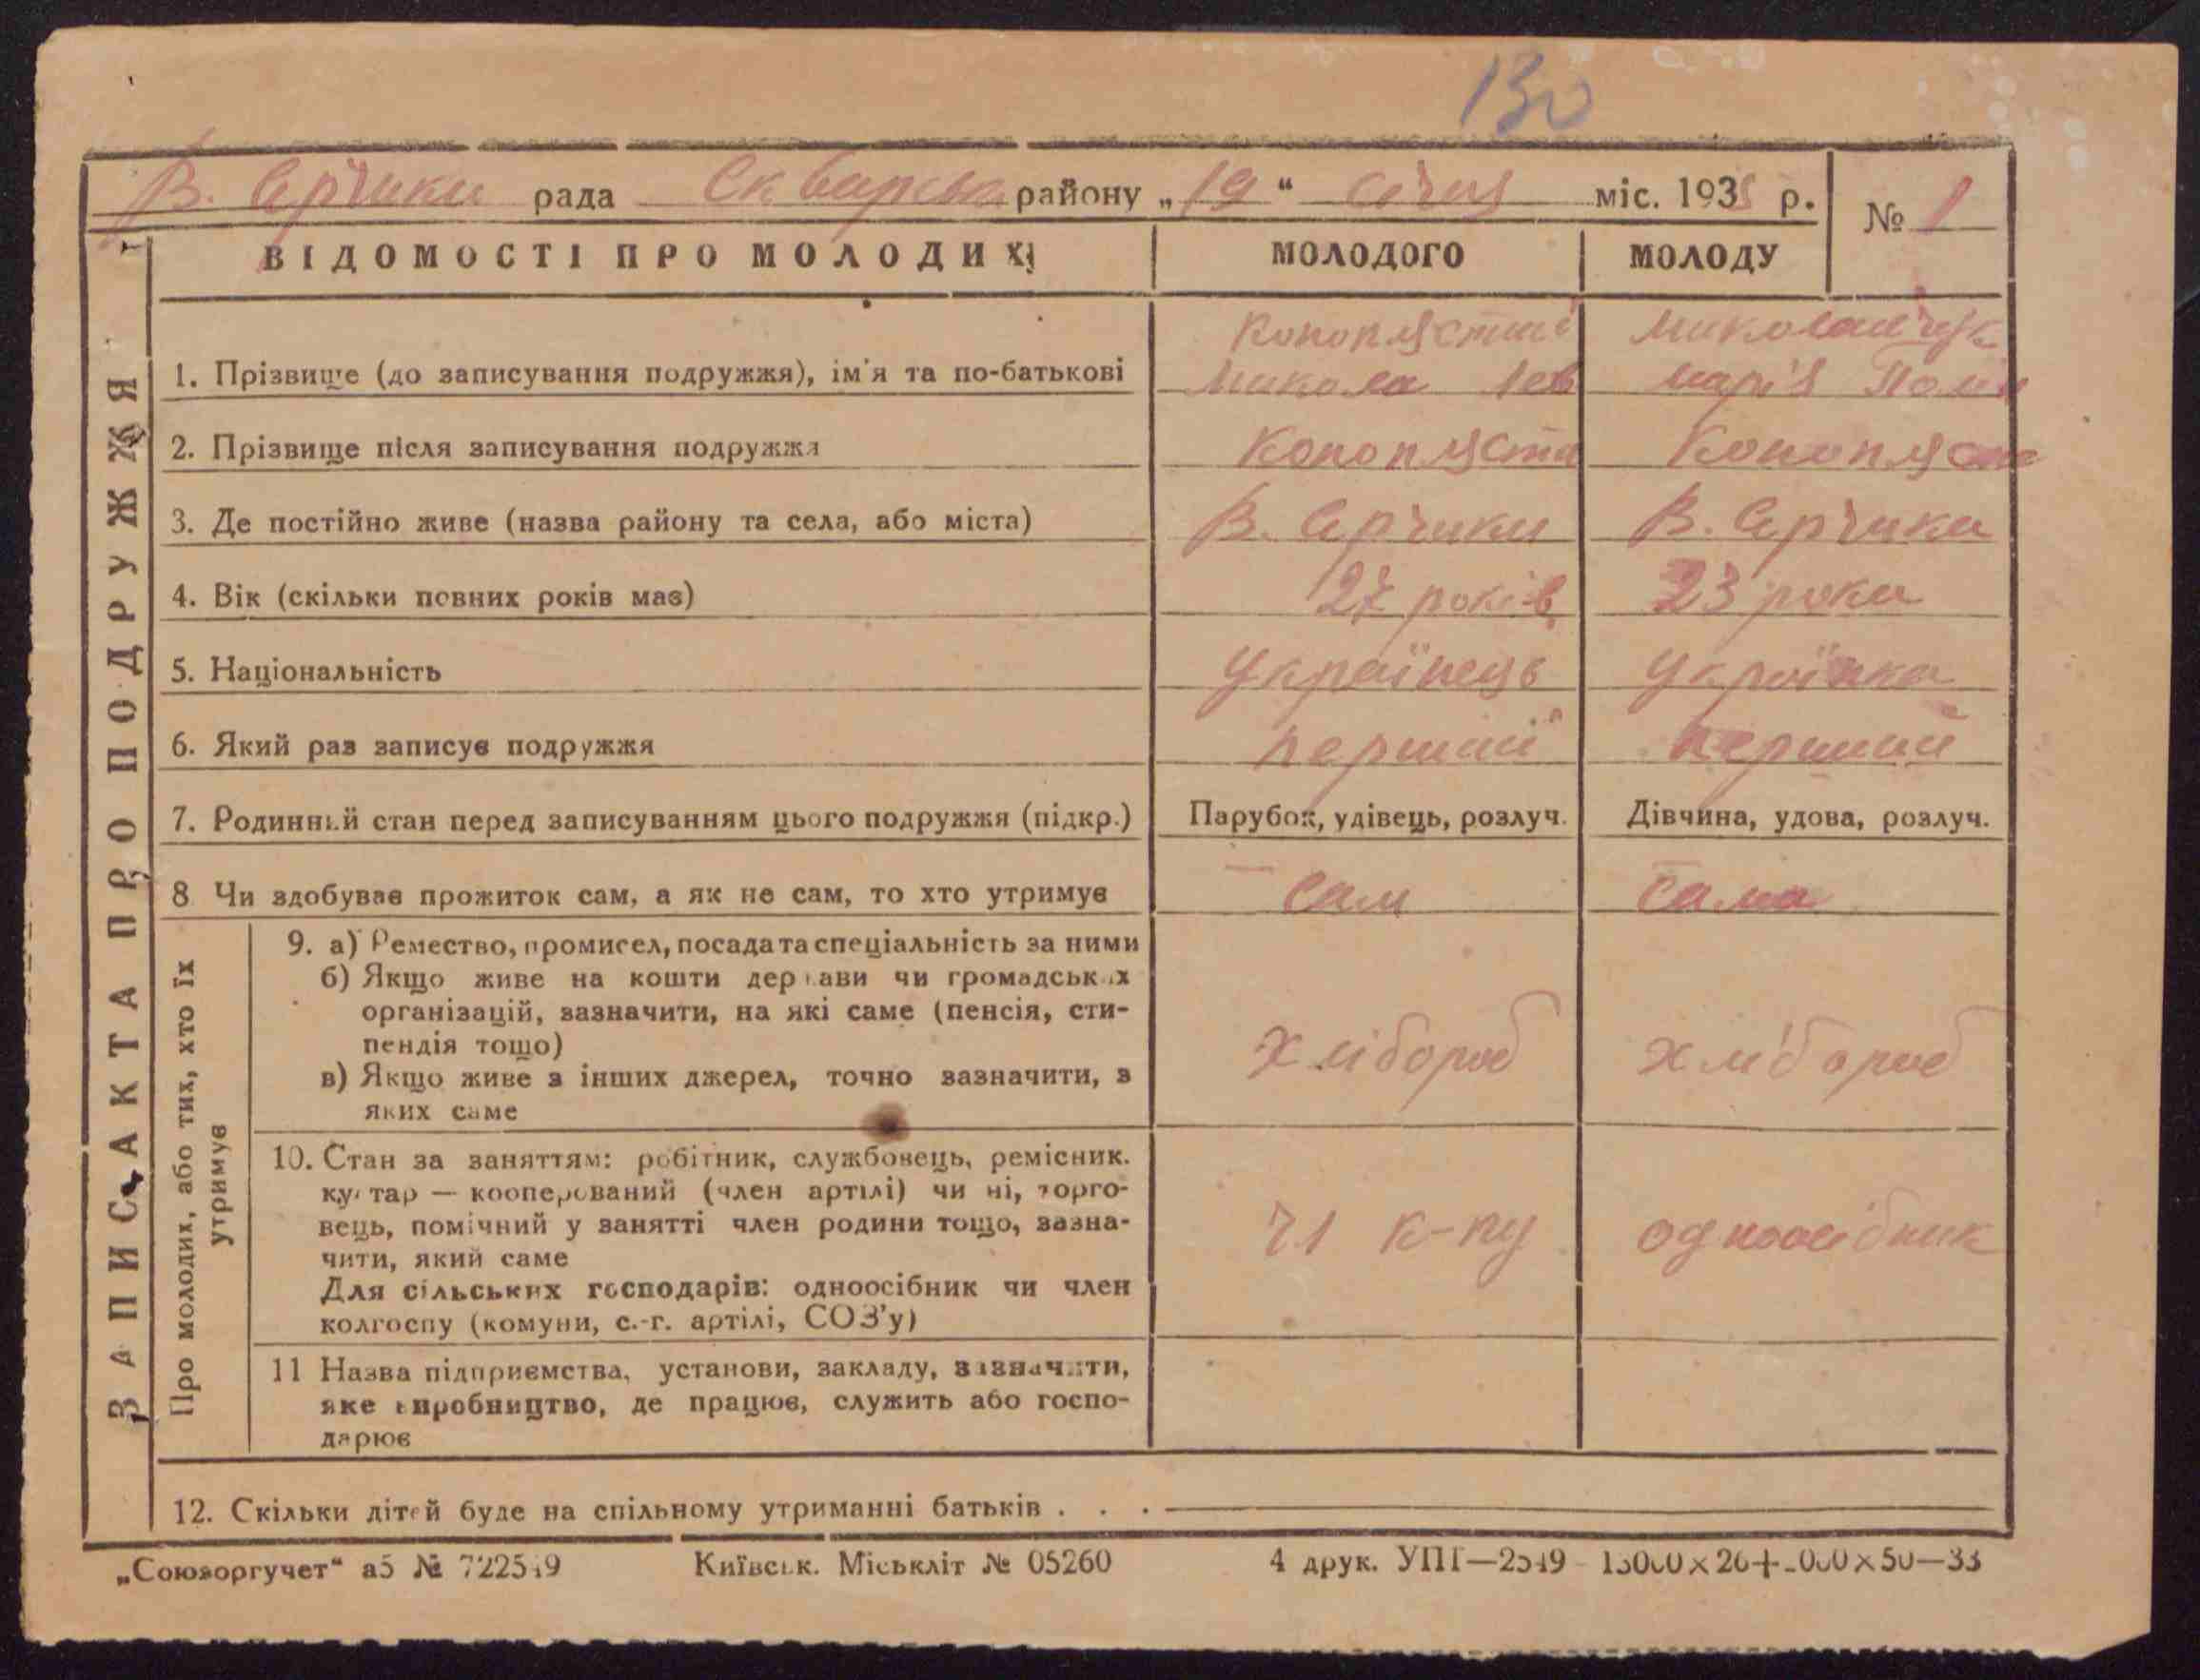 130
В. Єрчики рада Сквирська району „19“ січня міс. 193 р.
№ 1
ВІДОМОСТІ ПРО МОЛОДИХ
МОЛОДОГО
МОЛОДУ
ЗАПИС АКТА ПРО ПОДРУЖЖЯ
1. Прізвище (до записування подружжя), ім'я та по-батькові
Микола Лев
Миколайчук
Марія
2. Прізвище після записування подружжя
Конопляста
Конопляста
3. Де постійно живе (назва району та села, або міста)
В. Єрчики
В. Єрчики
4. Вік (скільки повних років має)
27 років
23 роки
5. Національність
Українець
Українка
6. Який раз записує подружжя
перший
перший
7. Родинний стан перед записуванням цього подружжя (підкр.)
Парубок, удівець, розлуч.
Дівчина, удова, розлуч.
8 Чи здобуває прожиток сам, а як не сам, то хто утримує
сам
сама
Про молодих, або тих, хто їх
утримує
9. а) Ремество, промисел, посада та спеціальність за ними
б) Якщо живе на кошти держави чи громадських
організацій, зазначити, на які саме (пенсія, сти-
пендія тощо)
в) Якщо живе з інших джерел, точно зазначити, з
яких саме
хлібороб
хлібороб
10. Стан за заняттям: робітник, службовець, ремісник.
кустар — кооперований (член артілі) чи ні, торго-
вець, помічний у занятті член родини тощо, зазна-
чити, який саме
Для сільських господарів: одноосібник чи член
колгоспу (комуни, с.-г. артілі, СОЗ'у)
чл к-пу
одноосібник
11 Назва підприємства, установи, закладу, зазначити,
яке виробництво, де працює, служить або госпо-
дарює
12. Скільки дітей буде на спільному утриманні батьків . . .
„Союзоргучет“ а5 №
Київськ. Міськліт № 05260
4 друк. УПП—2549